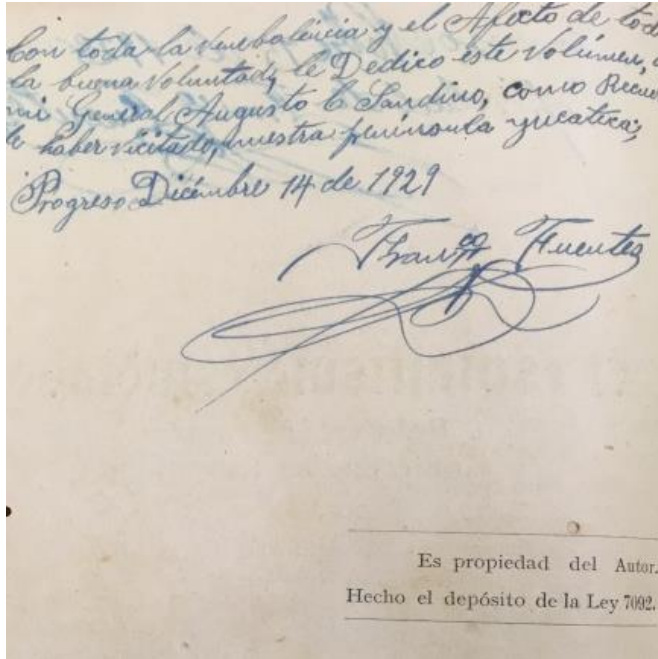 Con toda la venebolencia y el Afecto de tod
la buena Voluntad, le Dedico este Volúmen,
mi General Augusto C Sandino, como Recue
de haber vicitado, nuestra península yucateca,
Progreso Diciembre 14 de 1929
Franco Fuentes
Es propiedad del Autor.
Hecho el depósito de la Ley 7092.